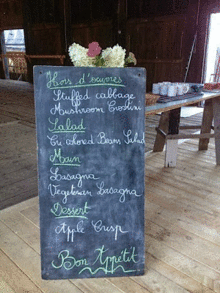 Hors d'oeuvres
Stuffed cabbage
Mushroom Crostini
Salad
Tri colored Bean Salad
Main
Lasagna
Vegetarian Lasagna
Dessert
Apple Crisp
Bon Appetit